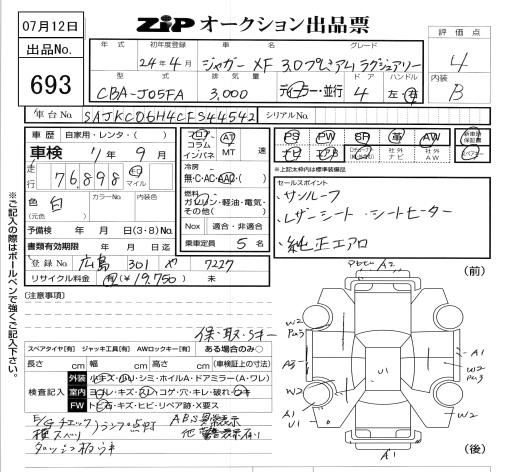 07月12日
出品No.
693
ZiP オークション出品票
評価点
4
内装
B
年式 初年度登録 車名 グレード
24年4月 ジャガー XF 3.0プレミアムラグジュアリー
型式 排気量 ドア ハンドル
CBA-J05FA 3,000 ディーラー・並行 4 左・右
車台No. SAJKC06H4CFS44542 シリアルNo.
車歴 自家用・レンタ( )
車検 7年9月
走行 76,898 キロ マイル
色 白 カラーNo. 内装色
(元色)
予備検 年 月 日(3・8)No.
書類有効期限 年 月 日迄
登録No. 広島 301 や 7227
リサイクル料金 有(¥19,750) 未
フロア
コラム
インパネ
AT
MT
速
冷房
無・C・AC・AAC・( )
燃料
ガソリン・軽油・電気・
その他( )
Nox 適合・非適合
乗車定員 5 名
PS PW SR 革 AW 新車時保証書
ナビ TV 社外ナビ 社外AW
※上記太枠内は標準装備品
セールスポイント
・サンルーフ
・レザーシート ・シートヒーター
・純正エアロ
※ご記入の際はボールペンで強くご記入下さい。
(注意事項)
保・取・Sキー
スペアタイヤ[有] ジャッキ工具[有] AWロックキー[有] ある場合のみ○
長さ cm 幅 cm 高さ cm (車検証上の寸法)
検査記入
外装 小キズ・凹・シミ・ホイルA・ドアミラー(A・ワレ)
室内 ヨゴレ・キズ・スレ・コゲ・穴・キレ・破れ・ウキ
FW トビ石・キズ・ヒビ・リペア跡・X要ス
E/Gチェックランプ点灯 ABS異常表示
積スペリ 他警告表示有り
ダッシュ板ウキ
(前)
A2
W2
A3
U1
A1
W2
W2
A1
U1
W2
A1
(後)